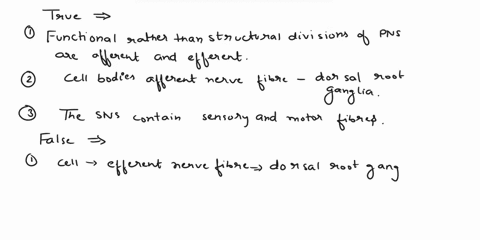 True ⇒
① Functional rather than structural divisions of PNS
are afferent and efferent.
② Cell bodies afferent nerve fibre - dorsal root
ganglia.
③ The SNS contain sensory and motor fibres.
False ⇒
① Cell → efferent nerve fibre → dorsal root gang